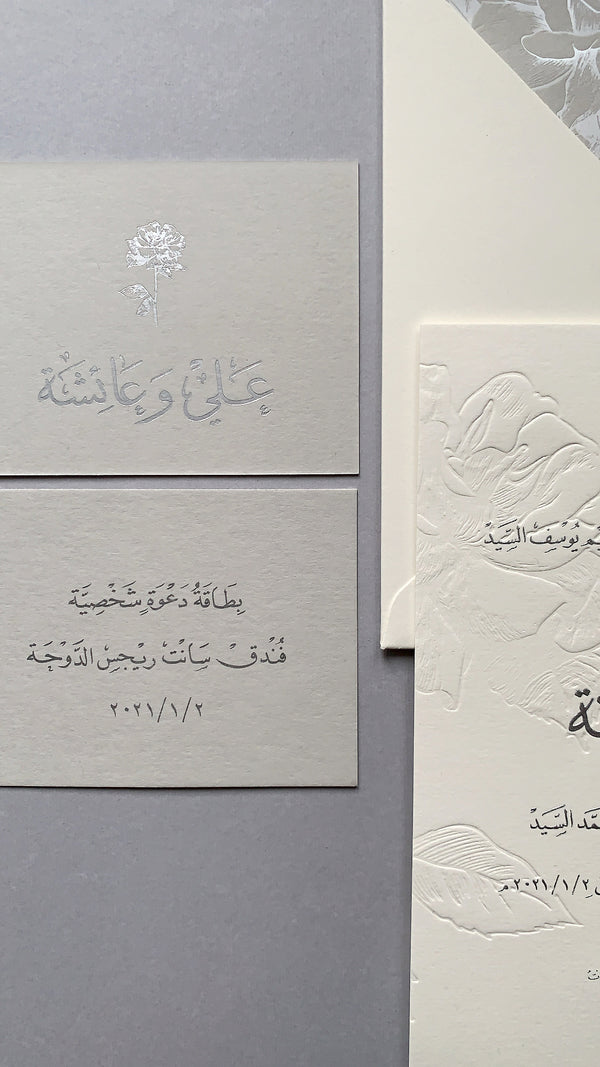 عَلِيّ وَعَائِشَة
بِطَاقَةُ دَعْوَةٍ شَخْصِيَّة
فُنْدُق سَانْت رِيْجِس الدَّوْحَة
٢٠٢١/١/٢
يُوْسِف السَّيِّد
السَّيِّد
٢٠٢١/١/٢م